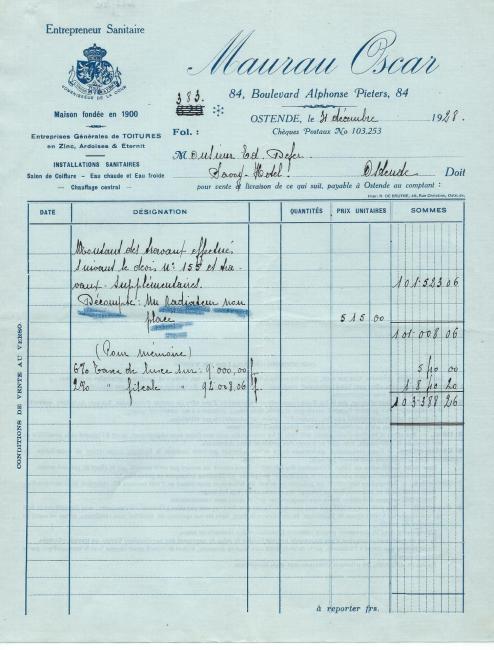 Entrepreneur Sanitaire
Maurau Oscar
FOURNISSEUR DE LA COUR
383.
84, Boulevard Alphonse Pieters, 84
Maison fondée en 1900
OSTENDE, le 31 décembre 1928.
Fol.:
Chèques Postaux No 103.253
Entreprises Générales de TOITURES
en Zinc, Ardoises & Eternit
Monsieur Ed. Defer.
INSTALLATIONS SANITAIRES
Salon de Coiffure - Eau chaude et Eau froide
Chauffage central
Savoy-Hotel! Ostende Doit
pour vente et livraison de ce qui suit, payable à Ostende au comptant:
DATE DÉSIGNATION QUANTITÉS PRIX UNITAIRES SOMMES
Montant des travaux effectués
suivant le devis n° 155 et tra-
vaux supplémentaires. 101.523 06
Décompte: Un radiateur non
placé 515 00
101.008 06
(Pour mémoire)
6% Taxe de luxe sur: 9.000,00 f. 540 00
2% " fiscale " 92.008.06 f. 1840 20
103.388 26
CONDITIONS DE VENTE AU VERSO.
à reporter frs.